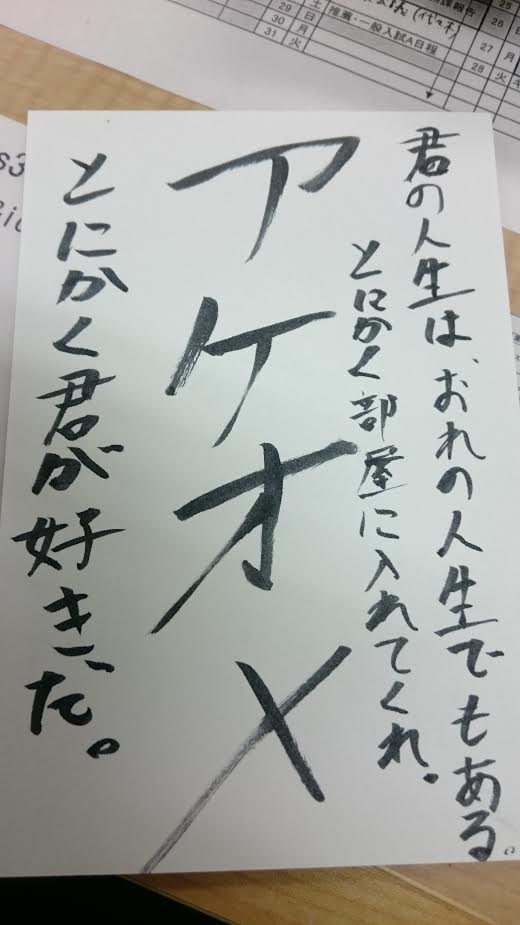 君の人生は、おれの人生でもある。
とにかく部屋に入れてくれ。
アケオメ
とにかく君が好きだ。
29 土
30 日 推薦・一般入試A日程
31 月
火
25
26 日
27 月
28 火
s3